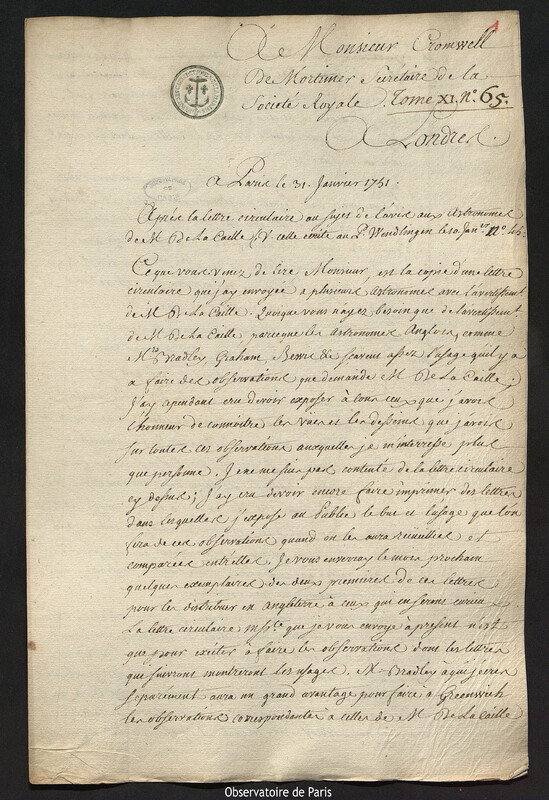 A Monsieur Cromwell
De Mortimer Secrétaire de la
Societé Royale. Tome XI. n.º 65.
A Londres.
A Paris le 31. Janvier 1751.
Après la lettre circulaire au sujet de l'avis aux Astronomes
de M De La Caille V. celle écrite au P. Wendlingen le 20 Janv.er n.º
Ce que vous venez de lire Monsieur, est la copie d'une lettre
circulaire que j'ay envoyée a plusieurs Astronomes avec l'avertissem.t
de M De La Caille. Quoique vous n'ayez besoin que de l'avertissem.t
de M De la Caille parceque les Astronomes Anglois, comme
M.rs Bradley, Graham, Bevis &c savent assez l'usage qu'il y a
a faire des observations que demande M De La Caille;
j'ay cependant cru devoir exposer à tous ceux que j'avois
l'honneur de connoitre les vues et les desseins que j'avois
sur toutes ces observations auxquelles je m'interresse plus
que personne. Je ne me suis pas contenté de la lettre circulaire
cy dessus; j'ay cru devoir encore faire imprimer des lettres
dans lesquelles j'expose au Public le but et l'usage que l'on
fera de ces observations quand on les aura réunies et
comparées entr'elles. Je vous enverray le mois prochain
quelques exemplaires des deux premieres de ces lettres
pour les distribuer en Angleterre à ceux qui en seront curieux.
La lettre circulaire mss.te que je vous envoye à present n'est
que pour exciter à faire les observations dont les lettres
qui suivront montreront les usages. M Bradley à qui j'écris
séparément aura un grand avantage pour faire à Greenwich
les observations correspondantes à celles de M De La Caille
Observatoire de Paris